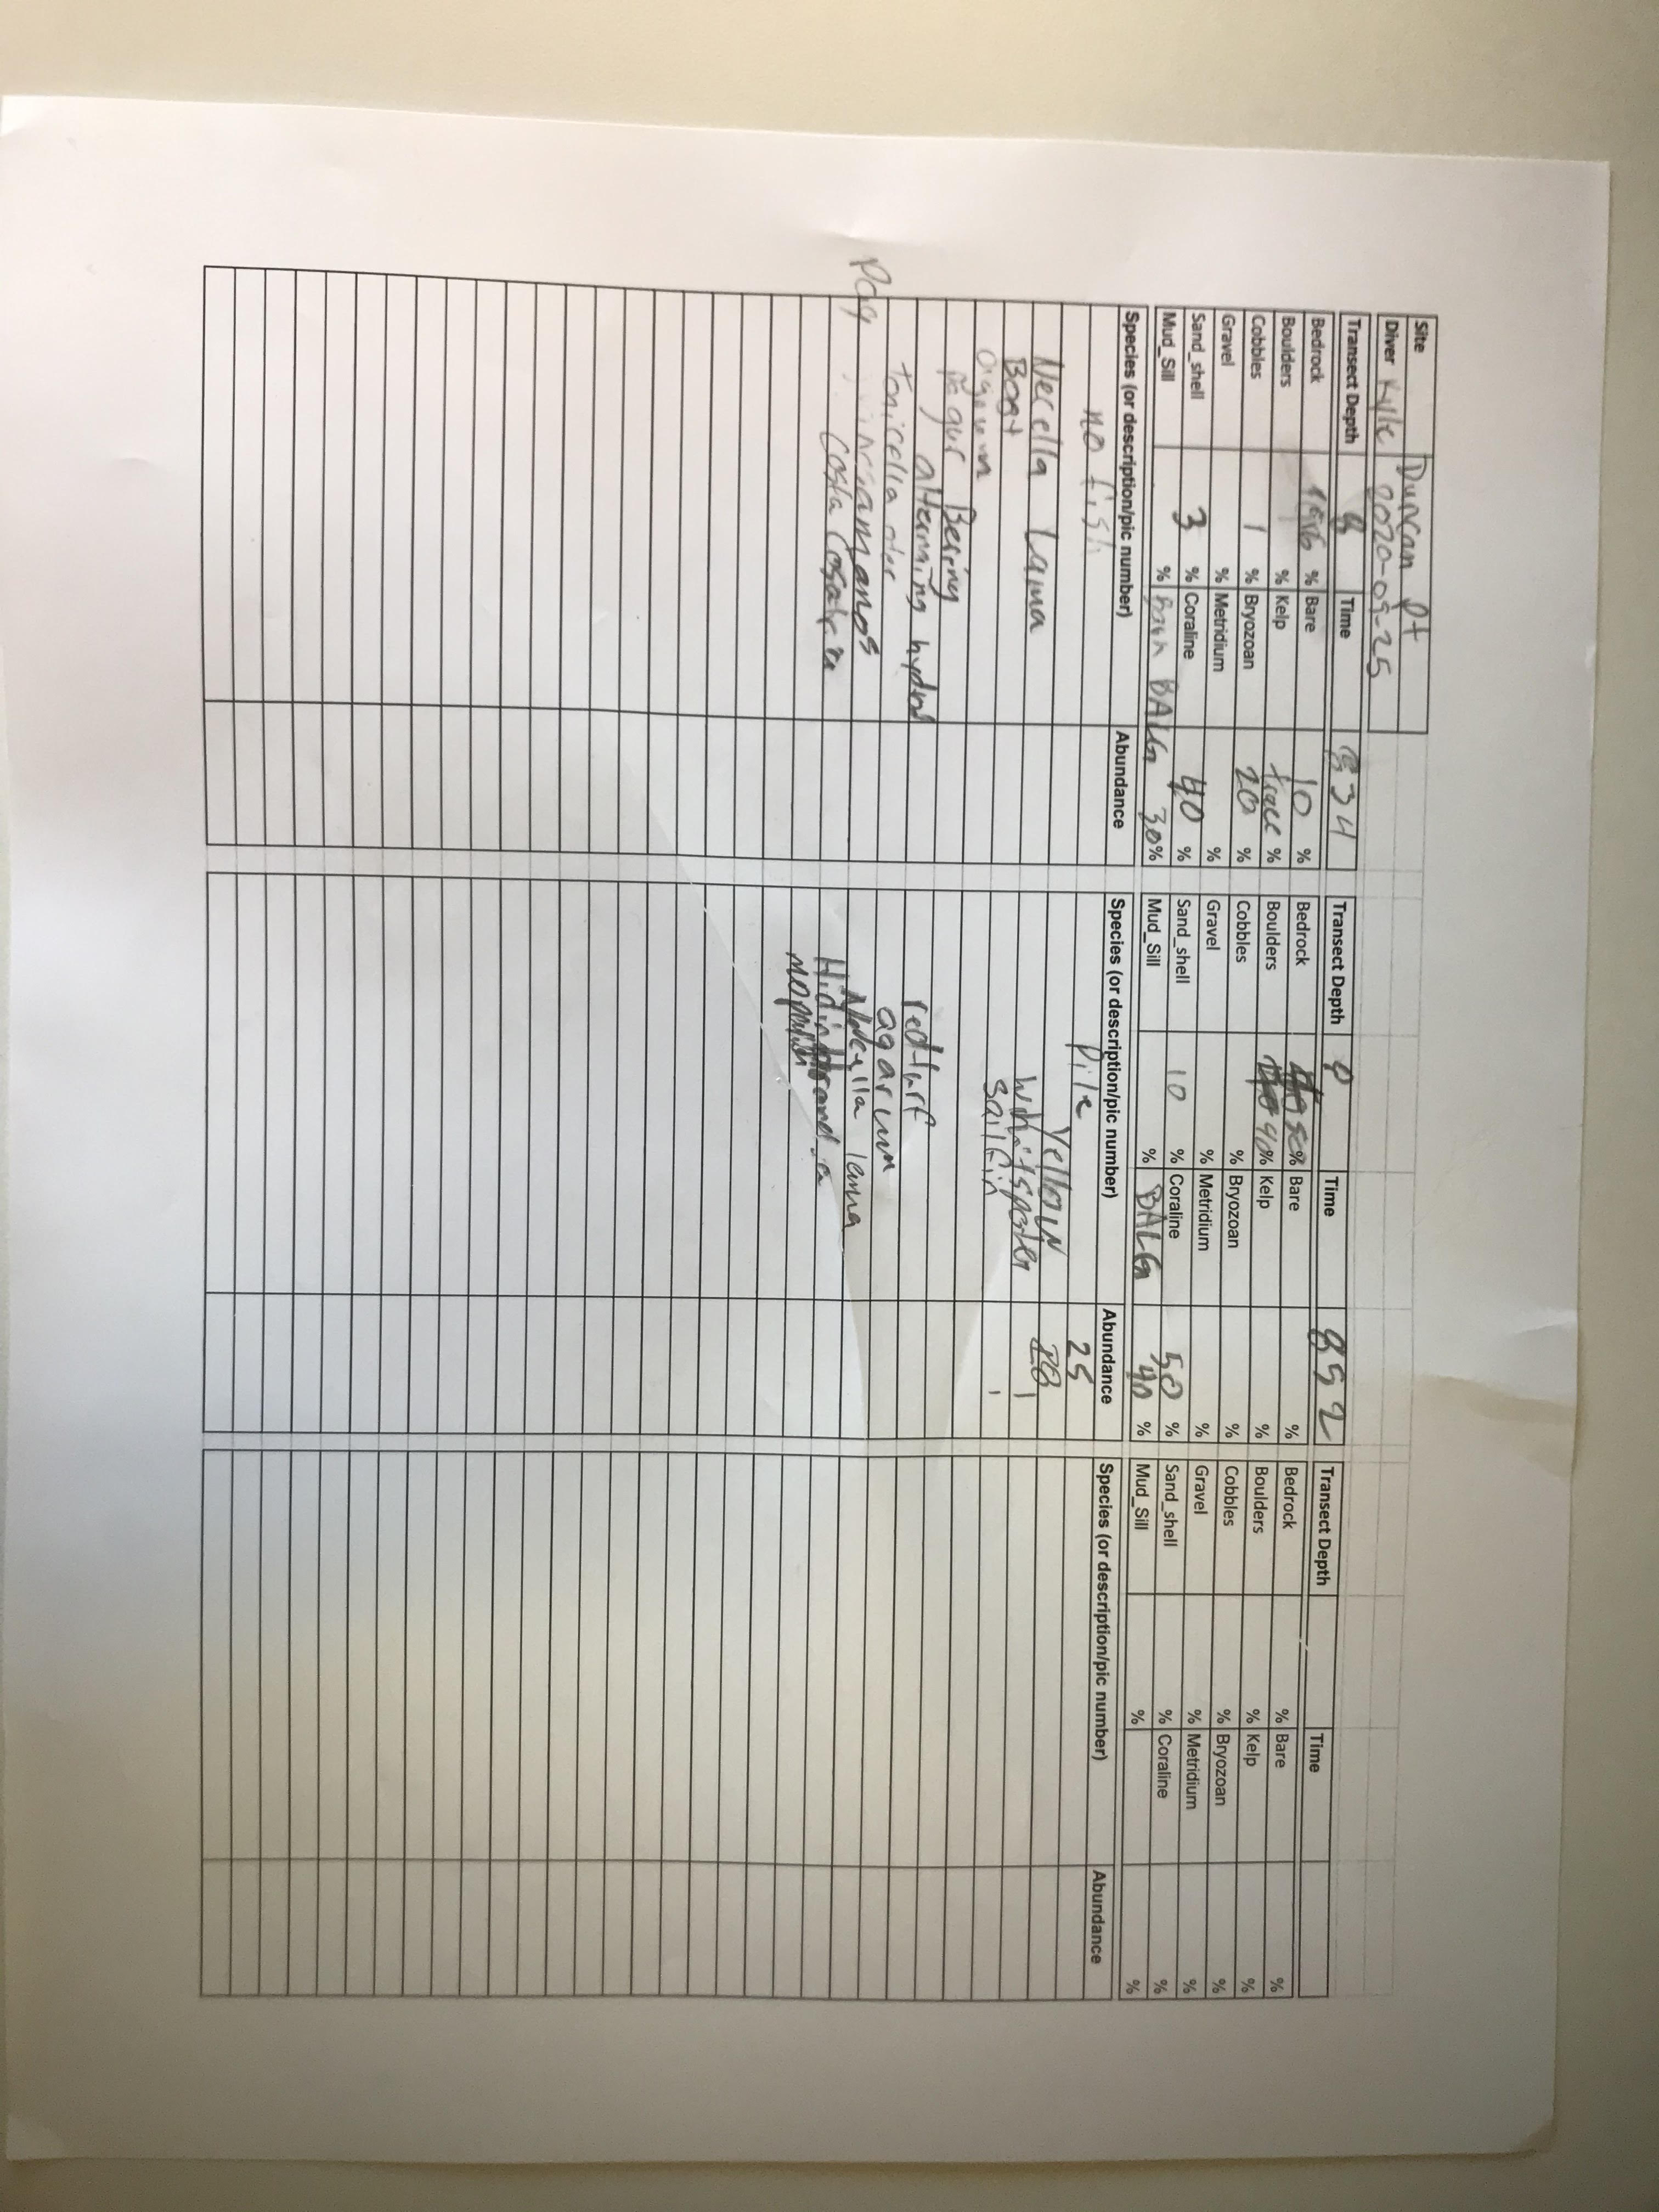 Site Duncan Pt
Diver Kyle 2020-09-25
Transect Depth Time 834
Bedrock % Bare 10 %
Boulders % Kelp trace %
Cobbles 1 % Bryozoan 20 %
Gravel % Metridium %
Sand_shell 3 % Coraline 40 %
Mud_Sill % BALG 30%
Species (or description/pic number) Abundance
no fish
Necella Lama
Boat
Bering
alterning hydroid
tonicella
Costa Costa
Transect Depth Time 852
Bedrock 50% Bare %
Boulders 40% Kelp %
Cobbles % Bryozoan %
Gravel % Metridium %
Sand_shell 10 % Coraline 50 %
Mud_Sill % BALG 40 %
Species (or description/pic number) Abundance
Pile 25
Yellow
whitespotted 1
sailfin 1
red turf
agarum
lama
Transect Depth Time
Bedrock % Bare %
Boulders % Kelp %
Cobbles % Bryozoan %
Gravel % Metridium %
Sand_shell % Coraline %
Mud_Sill % %
Species (or description/pic number) Abundance